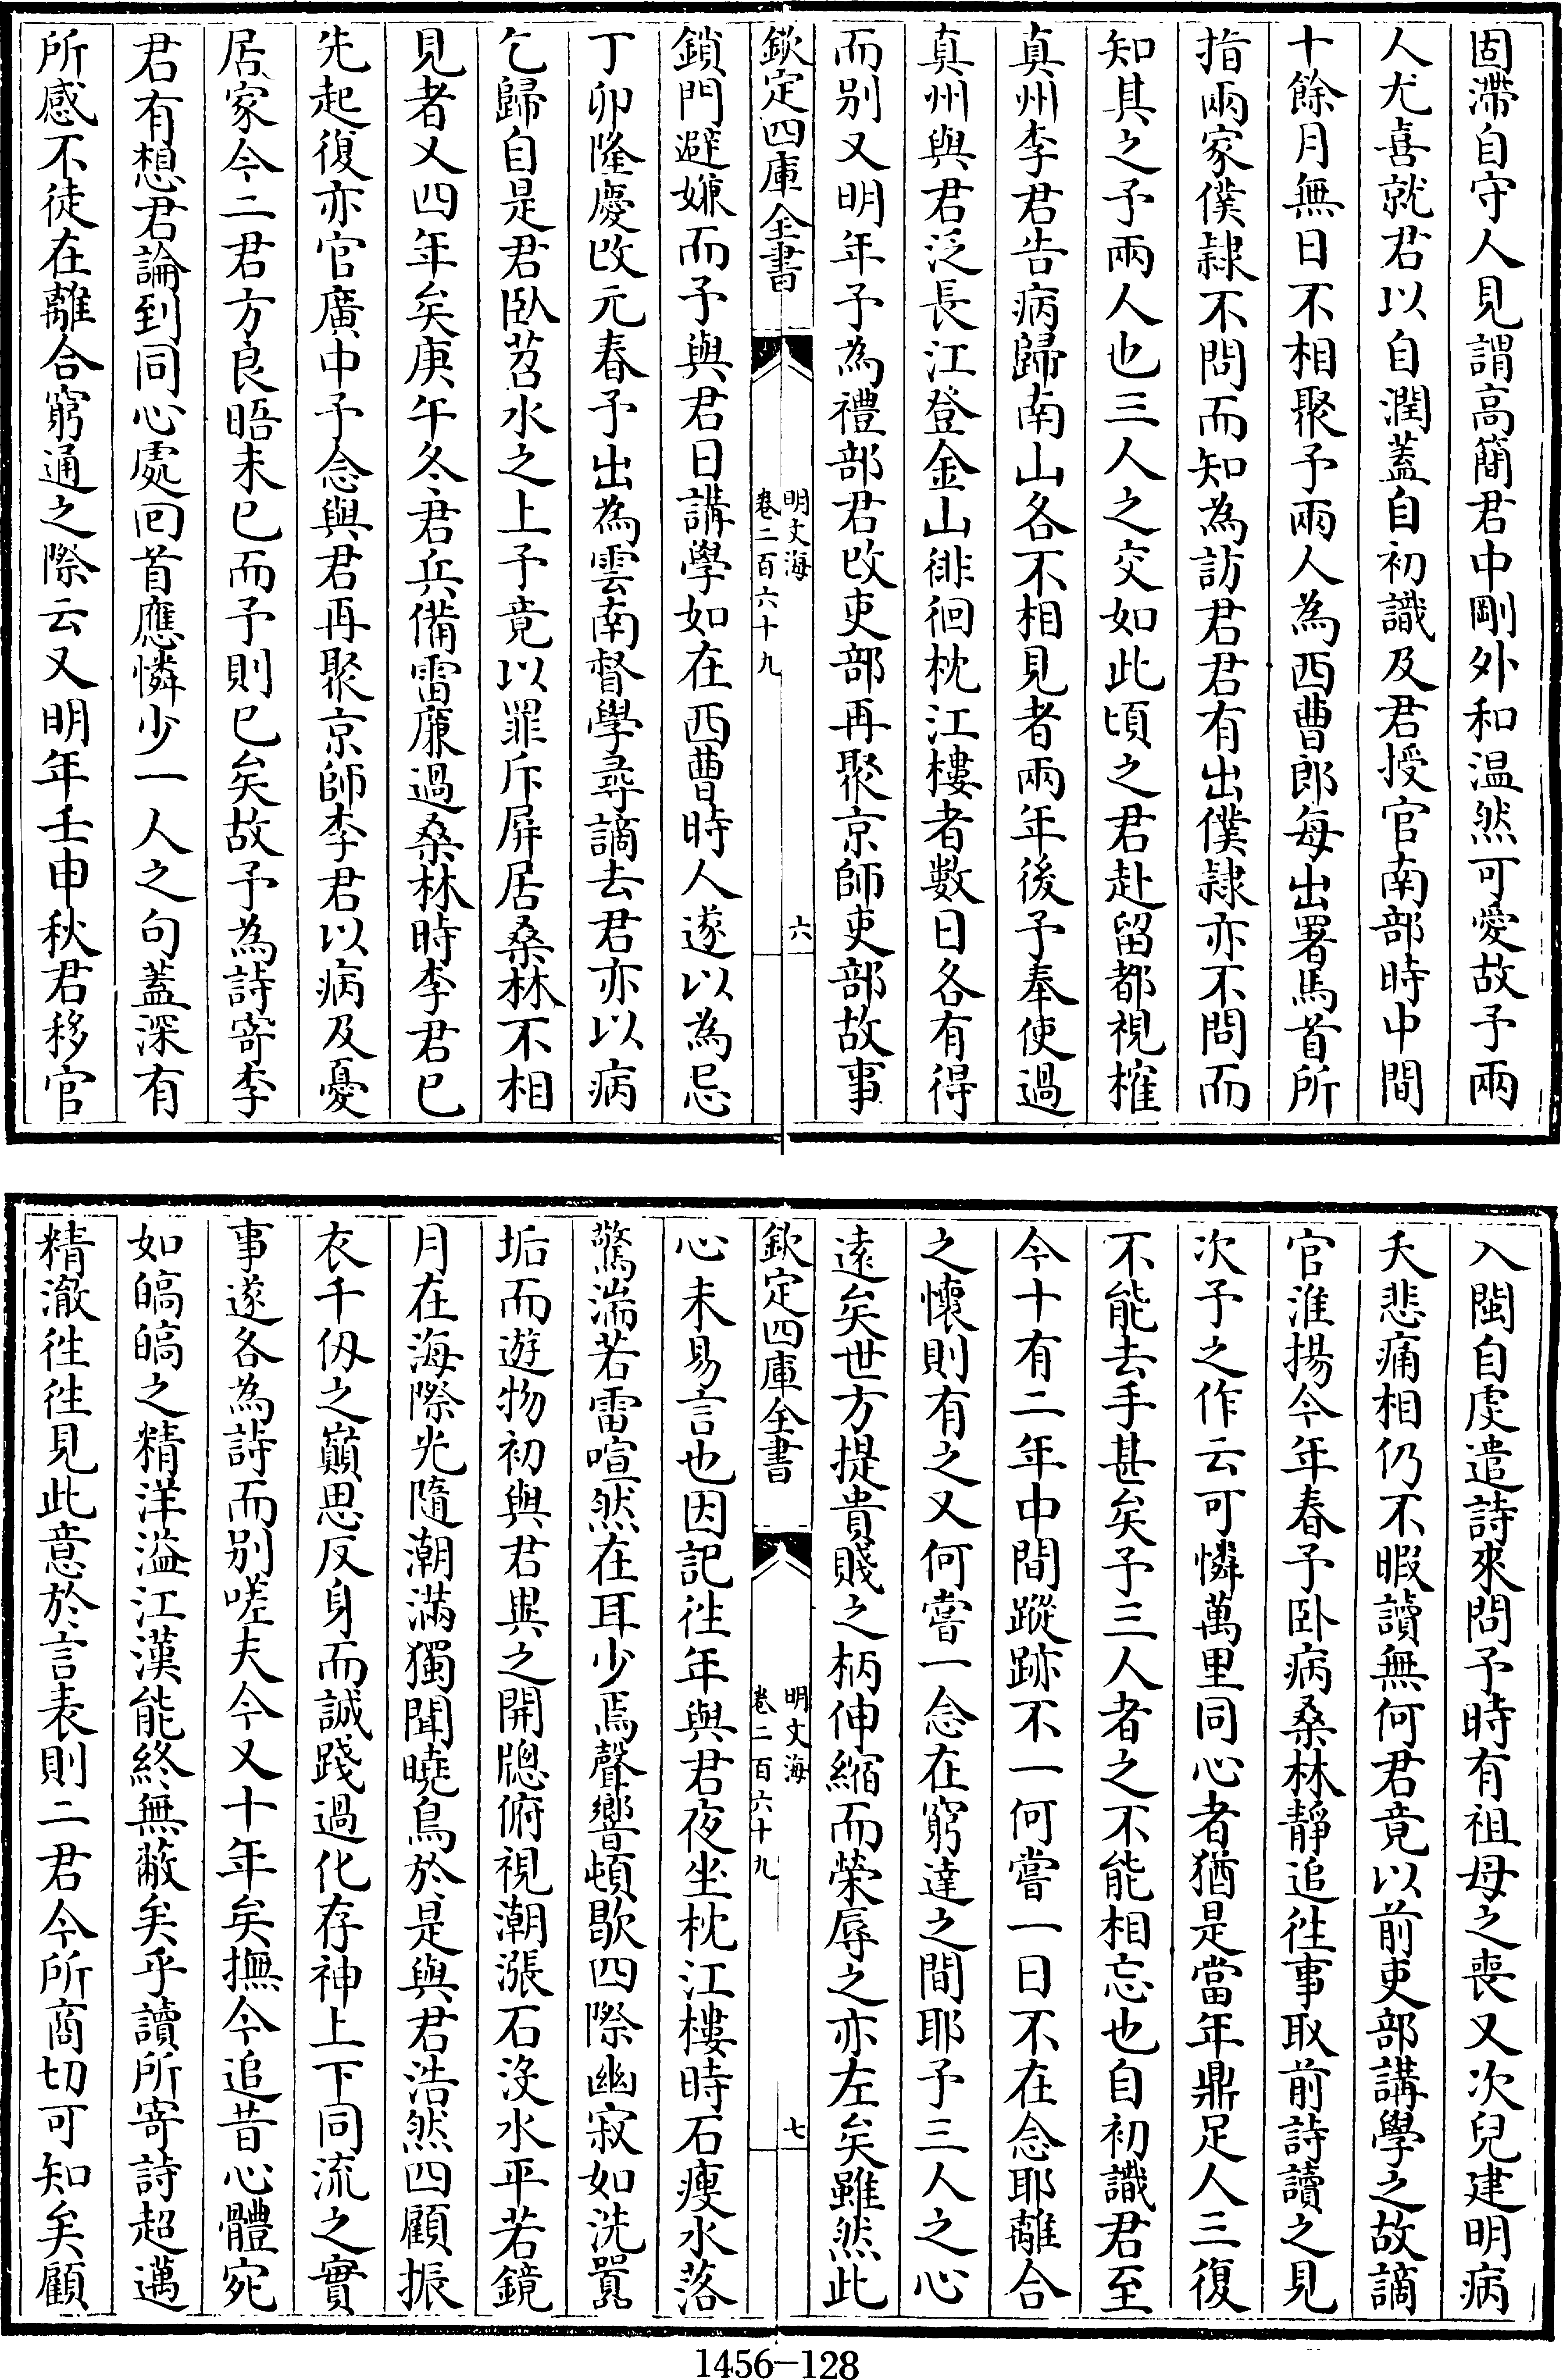 固滯自守人見謂高簡君中剛外和温然可愛故予兩
人尤喜就君以自潤蓋自初識及君授官南部時中間
十餘月無日不相聚予兩人為西曹郎每出署馬首所
指兩家僕隸不問而知為訪君君有出僕隸亦不問而
知其之予兩人也三人之交如此頃之君赴留都視榷
真州李君告病歸南山各不相見者兩年後予奉使過
真州與君泛長江登金山徘徊枕江樓者數日各有得
而別又明年予為禮部君改吏部再聚京師吏部故事
欽定四庫全書
明文海
卷二百六十九
六
鎖門避嫌而予與君日講學如在西曹時人遂以為忌
丁卯隆慶改元春予出為雲南督學尋謫去君亦以病
乞歸自是君卧苕水之上予竟以罪斥屏居桑林不相
見者又四年矣庚午冬君兵備雷廉過桑林時李君已
先起復亦官廣中予念與君再聚京師李君以病及憂
居家今二君方良晤未已而予則已矣故予為詩寄李
君有想君論到同心處回首應憐少一人之句蓋深有
所感不徒在離合窮通之際云又明年壬申秋君移官
入閩自虔遣詩來問予時有祖母之喪又次兒建明病
夭悲痛相仍不暇讀無何君竟以前吏部講學之故謫
官淮揚今年春予卧病桑林靜追徃事取前詩讀之見
次予之作云可憐萬里同心者猶是當年鼎足人三復
不能去手甚矣予三人者之不能相忘也自初識君至
今十有二年中間蹤跡不一何嘗一日不在念耶離合
之懷則有之又何嘗一念在窮達之間耶予三人之心
遠矣世方提貴賤之柄伸縮而榮辱之亦左矣雖然此
欽定四庫全書
明文海
卷二百六十九
七
心未易言也因記徃年與君夜坐枕江樓時石瘦水落
驚湍若雷喧然在耳少焉聲響頓歇四際幽寂如洗嚣
垢而遊物初與君異之開牕俯視潮漲石没水平若鏡
月在海際光隨潮滿獨聞曉烏於是與君浩然四顧振
衣千仭之巔思反身而誠踐過化存神上下同流之實
事遂各為詩而別嗟夫今又十年矣撫今追昔心體宛
如皜皜之精洋溢江漢能終無蔽矣乎讀所寄詩超邁
精澈徃徃見此意於言表則二君今所商切可知矣顧
1456—128